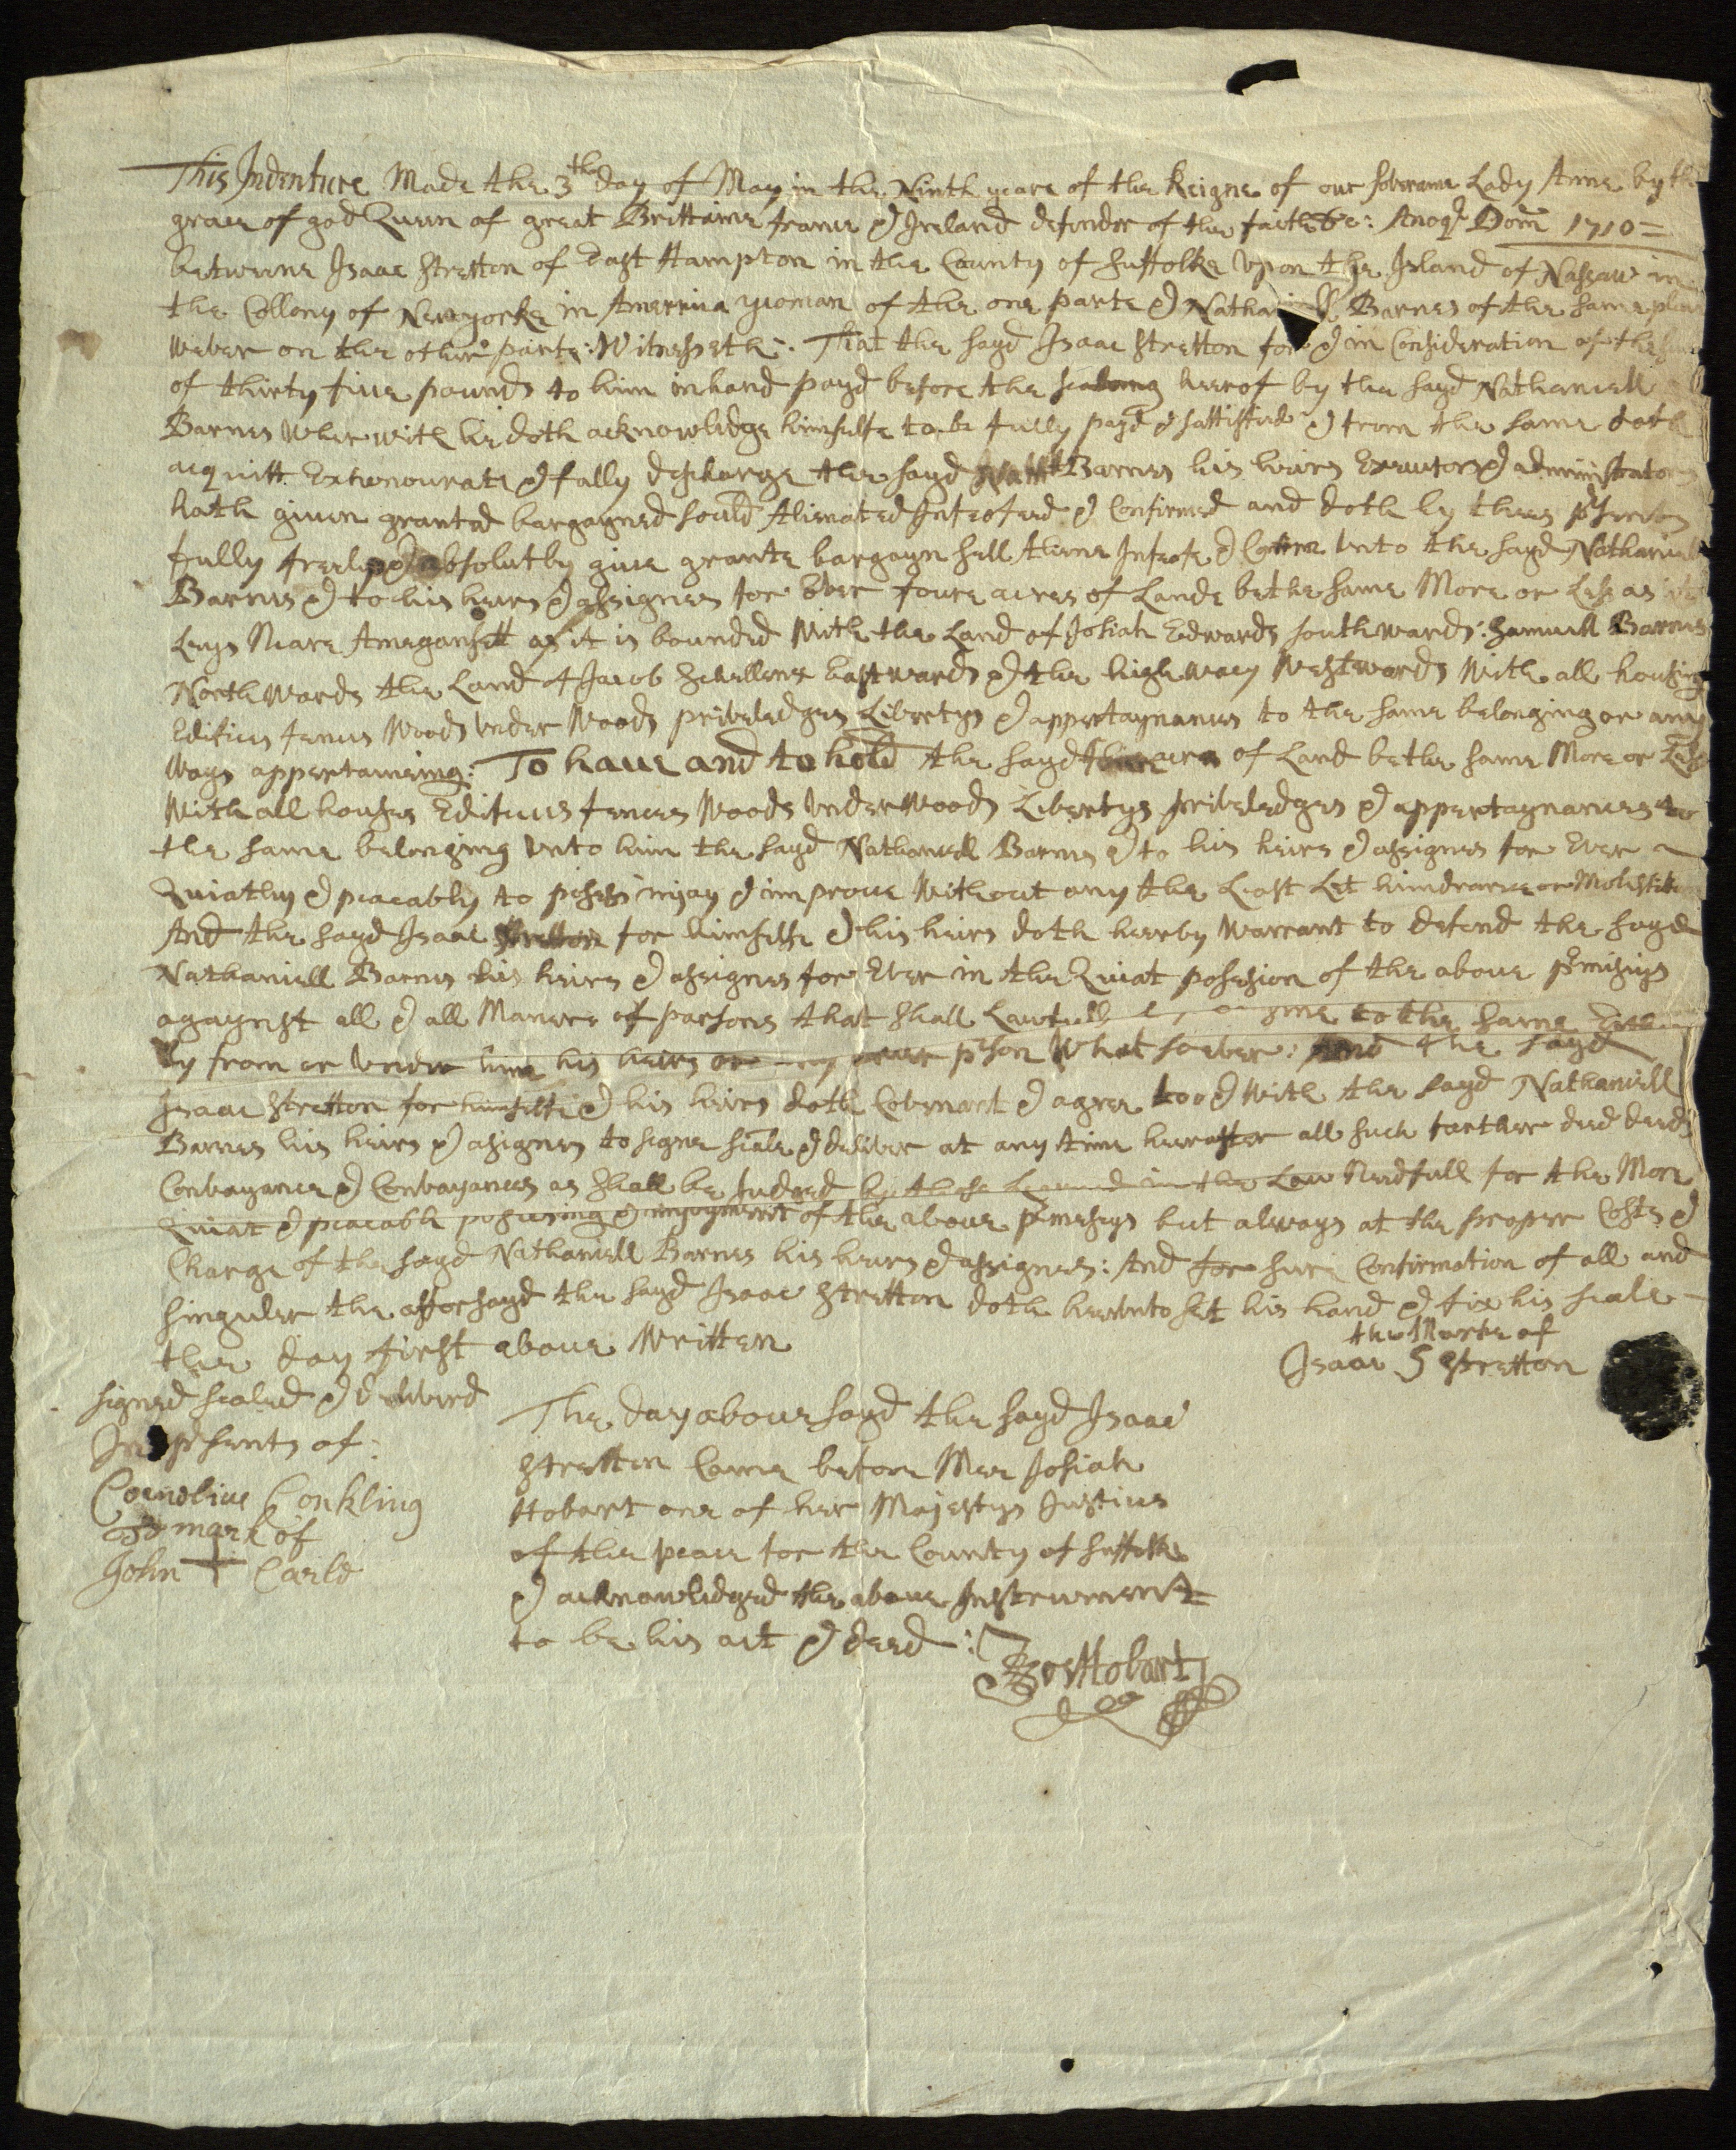 This Indenture Made the 3th day of May in the Ninth yeare of the Reigne of our soveraine Lady Anne by the
grace of god Queen of great Brittaine france & Ireland defender of the faith &c: Anoq Dom 1710=
betweene Isaac Stretton of East Hampton in the County of Suffolke Vpon the Island of Nassaw in
the Collony of Newyorke in Amerrica yeoman of the one parte & Nathaniell Barnes of the same place
Wever on the other parte: Witnesseth: That the sayd Isaac Stretton for & in Consideration of the
of thirty five pounds to him in hand payd before the sealeing hereof by the sayd Nathaniell
Barnes Wherwith he doth acknowlidge himselfe to be fully payd & sattisfied & from the same doth
acquitt Exhonourate & fully discharge the sayd Nath Barnes his heires Executors & administrators
hath given granted bargayned sould Alienated Infeofeed & Confirmed and doth by thees psents
fully freely & absolutly give grante bargayn sell Infeofe & Vnto the sayd Nathaniell
Barnes & to his heires & assignes for Ever foure acres of Lande be the same More or Less as
Leys Neare Amegansett as it is bounded With the Land of Josiah Edwards southwards: Samuell Barnes
NorthWards the Land of Jacob Schellenx Eastwards & the high way Westwards With all housing
Edifices fences Woods Vnder Woods priveledges Libertys & appertaynances to the same belonging or any
Ways appertaineing: To have and to hold the sayd foure acres of Land be the same More or Less
With all houses Edifices fences Woods Vnder Woods Libertys priveledges & appertaynances to
the same belonging Vnto him the sayd Nathaniell Barnes & to his heires & assignes for Ever
Quiatly & peacably to posess injoy & improve Without any the Least Let hinderance or Molestation
And the sayd Isaac Stretton for himselfe & his heires doth hereby Warrant to defend the sayd
Nathaniell Barnes his heires & assignes for Ever in the Quiat posession of the above pmisiys
agaynst all & all Manner of parsons that shall Lawfully to the same
by from or Vnder him his heires or any pson What soever: And the sayd
Isaac Stretton for himselfe & his heires doth Covenant & agree too & With the sayd Nathaniell
Barnes his heires & asignes to signe seale & deliver at any time hereafter all such farther deed deeds
Convayance & Convayances as shall be Judged by those Learned in the Law Needfull for the More
Quiat & peacable posessing & injoyment of the above pmesiys but always at the proper Costs &
Charge of the sayd Nathaniell Barnes his heires & assignes: And for sure Confirmation of all and
singuler the afforsayd the sayd Isaac Stretton doth hereunto set his hand & fix his seale
the day first above Written
the Marke of
Isaac S Stretton
signed sealed & delivered
In psents of:
Cornelius Conkling
mark of
John + Carle
The day above sayd the sayd Isaac
Stretten Came before Mee Josiah
Hobart one of her Majestys Justices
of the peace for the County of Suffolke
& acknowlidged the above Instrument
to be his act & deed:
Jos Hobart